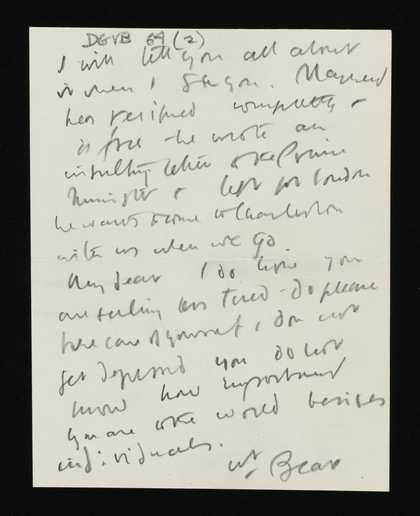 DGVB 64 (2)
I will tell you all about
it when I see you. Maynard
has resigned completely &
is free - he wrote an
insulting letter to the Prime
Minister & left for London
he wants to come to Charleston
with us when we go.
My dear I do hope you
are feeling less tired - do please
take care of yourself & don't
get depressed you do not
know how important
you are to the world besides
individuals.
Bear